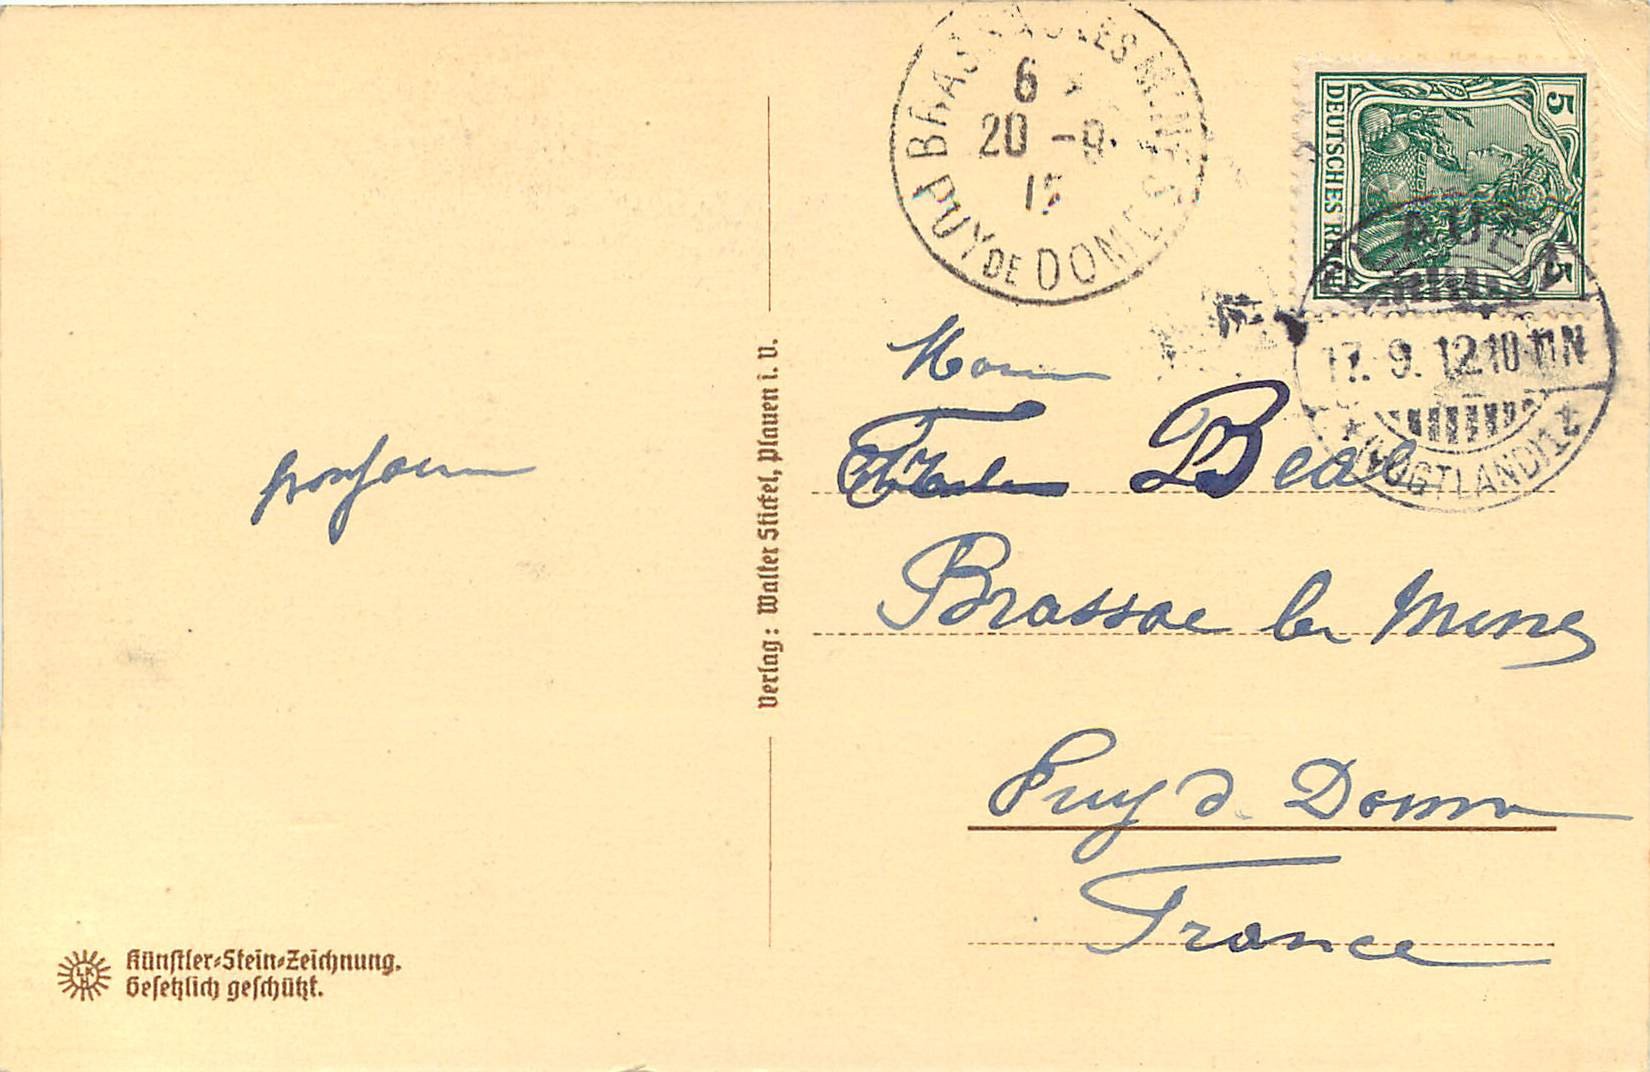 BRASSAC LES MINES
6
20 -9
12
PUY DE DOME
5
DEUTSCHES REICH
5
PLAUEN
17. 9. 12. 10-11 N
(VOGTLAND) 1 t
Beal
Brassac les Mines
Puy d. Dome
France
bonjour
Verlag: Walter Stickel, Plauen i. V.
Künstler-Stein-Zeichnung.
Gesetzlich geschützt.